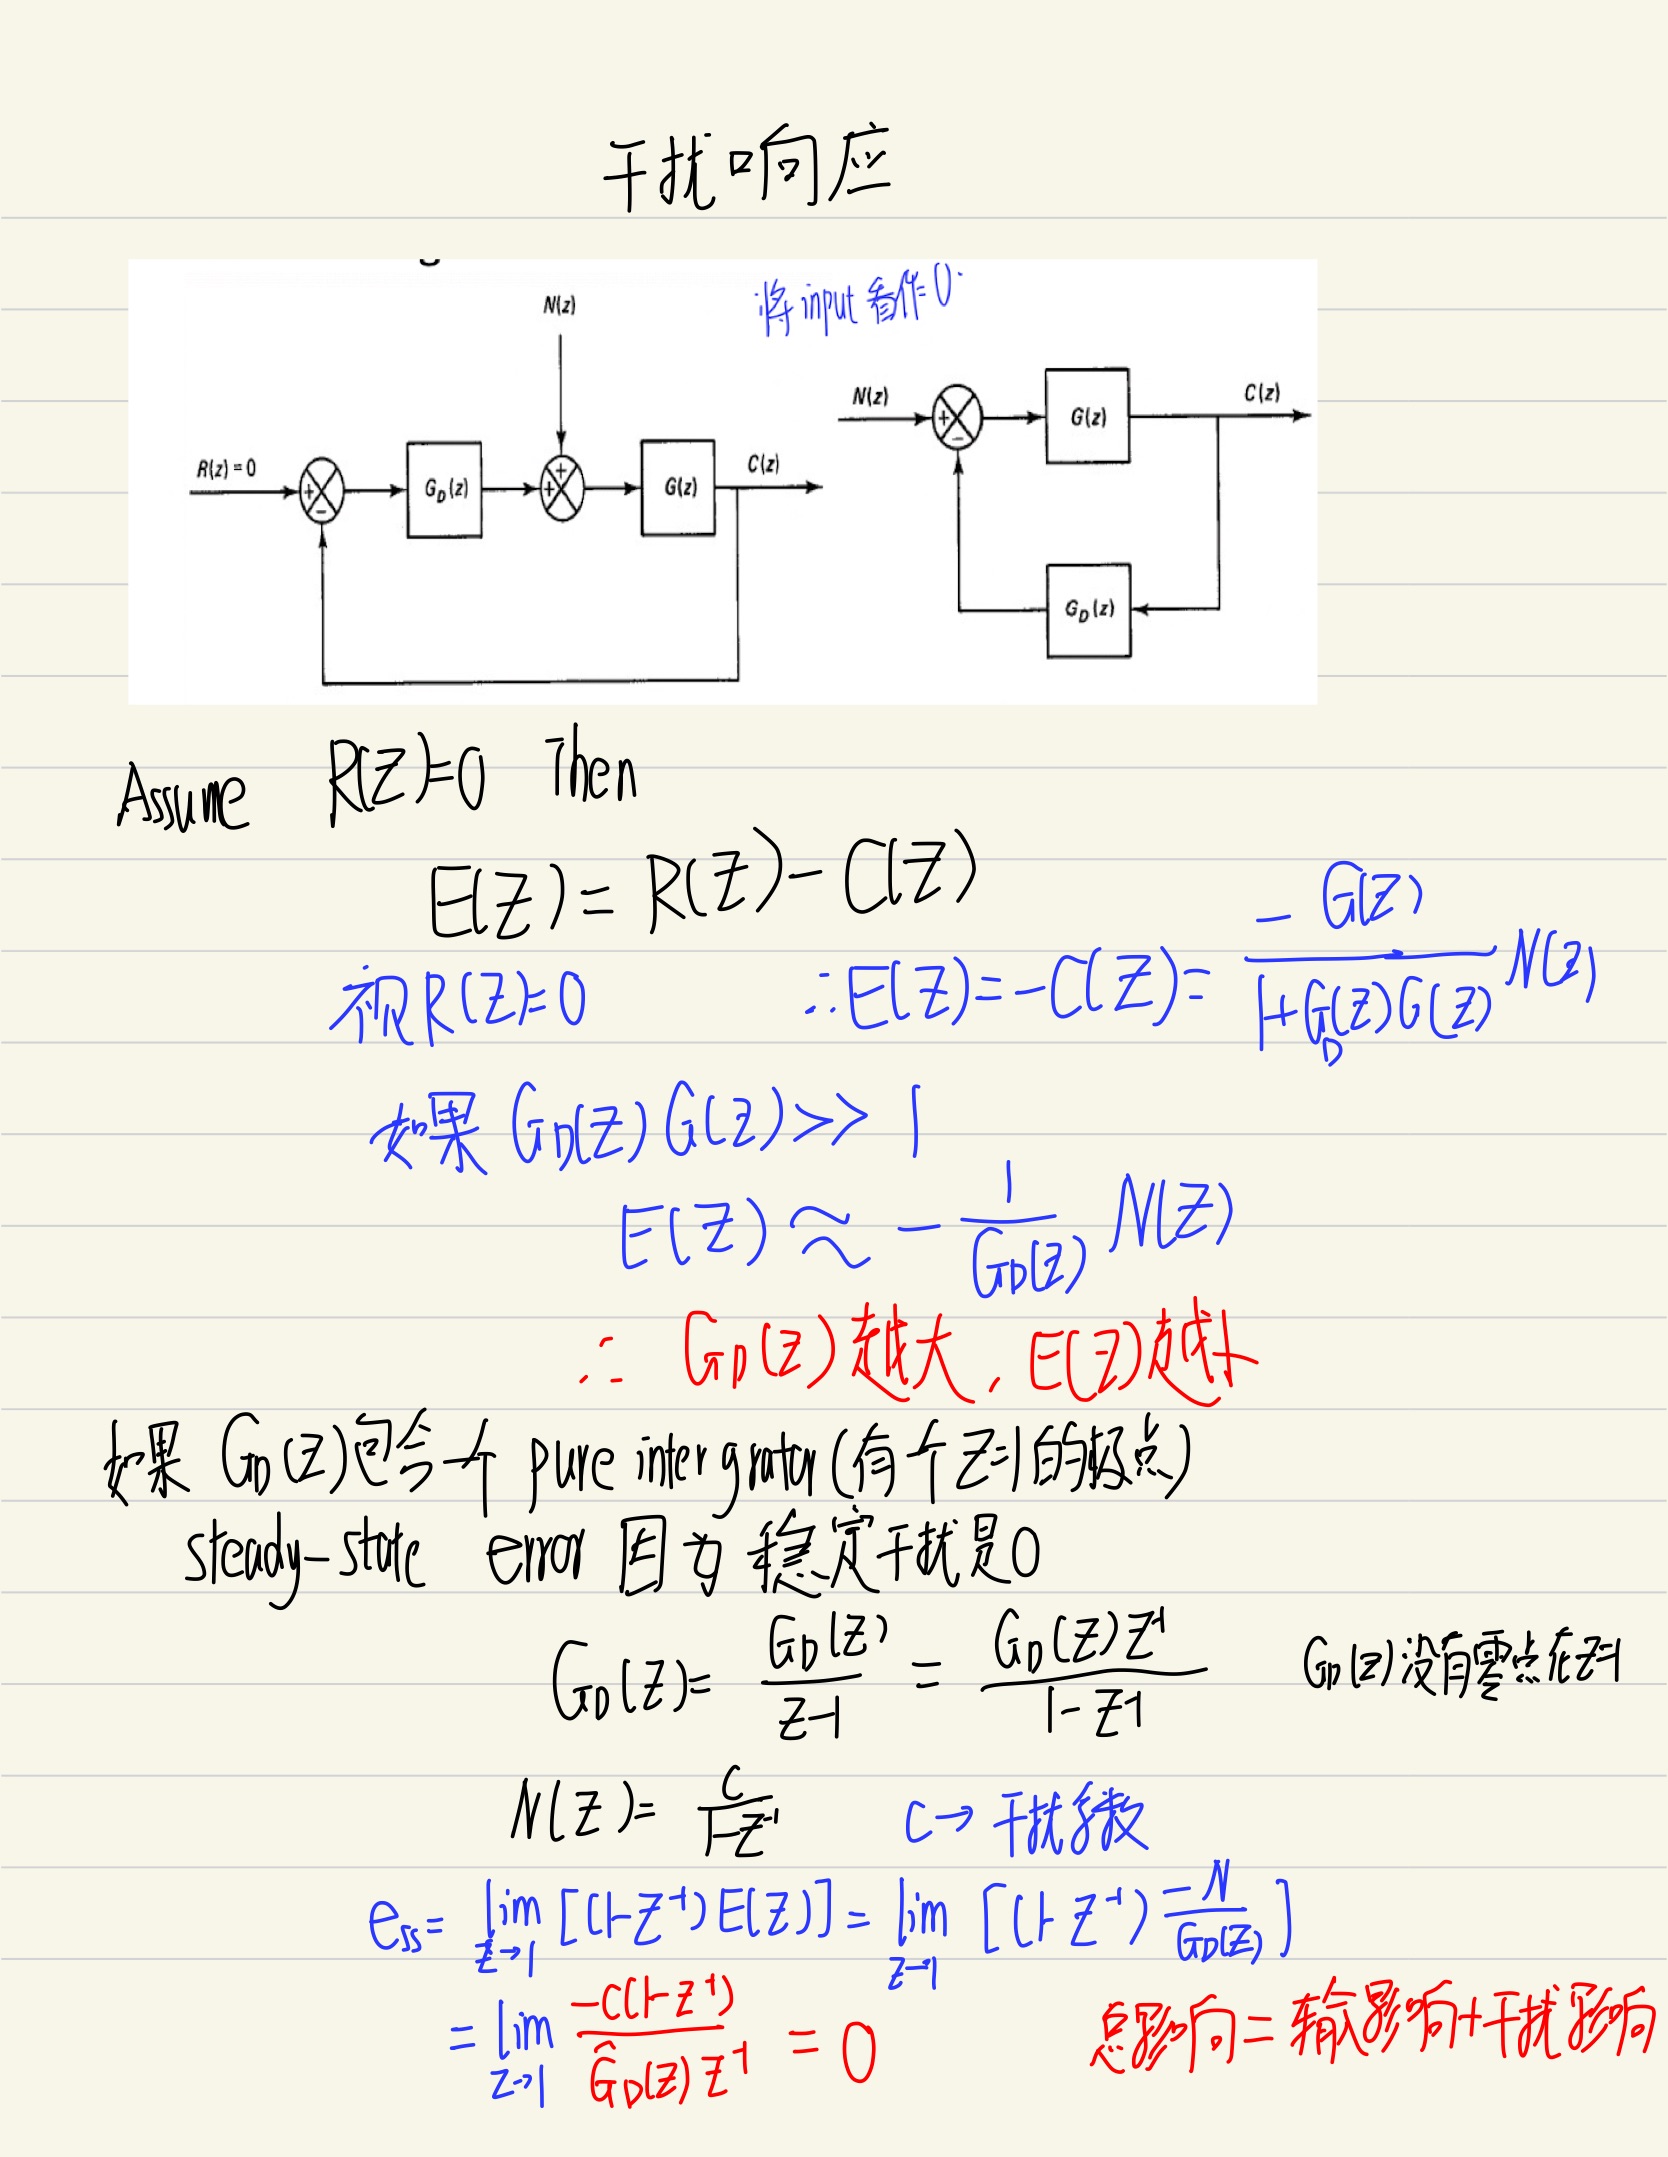 干扰响应
将input看作0.
N(z)
R(z)=0
G_D(z)
G(z)
C(z)
N(z)
G(z)
C(z)
G_D(z)
Assume R(Z)=0 Then
E(Z)=R(Z)-C(Z)
视R(Z)=0 ∴E(Z)=-C(Z)= -G(Z)/(1+G_D(Z)G(Z)) N(Z)
如果 G_D(Z)G(Z)>>1
E(Z)≈ -1/G_D(Z) N(Z)
∴ G_D(Z)越大,E(Z)越小
如果 G_D(Z)包含一个pure intergrator(有个Z=1的极点)
steady-state error 因为稳定干扰是0
G_D(Z)= G_D(Z)/(Z-1) = G_D(Z)Z^-1/(1-Z^-1) G_D(Z)没有零点在Z=1
N(Z)= C/(1-Z^-1) C→干扰系数
e_ss= lim_{Z→1} [(1-Z^-1)E(Z)]= lim_{Z→1} [(1-Z^-1) -N/G_D(Z)]
= lim_{Z→1} -C(1-Z^-1)/(Ĝ_D(Z)Z^-1) = 0 总影响=输入影响+干扰影响